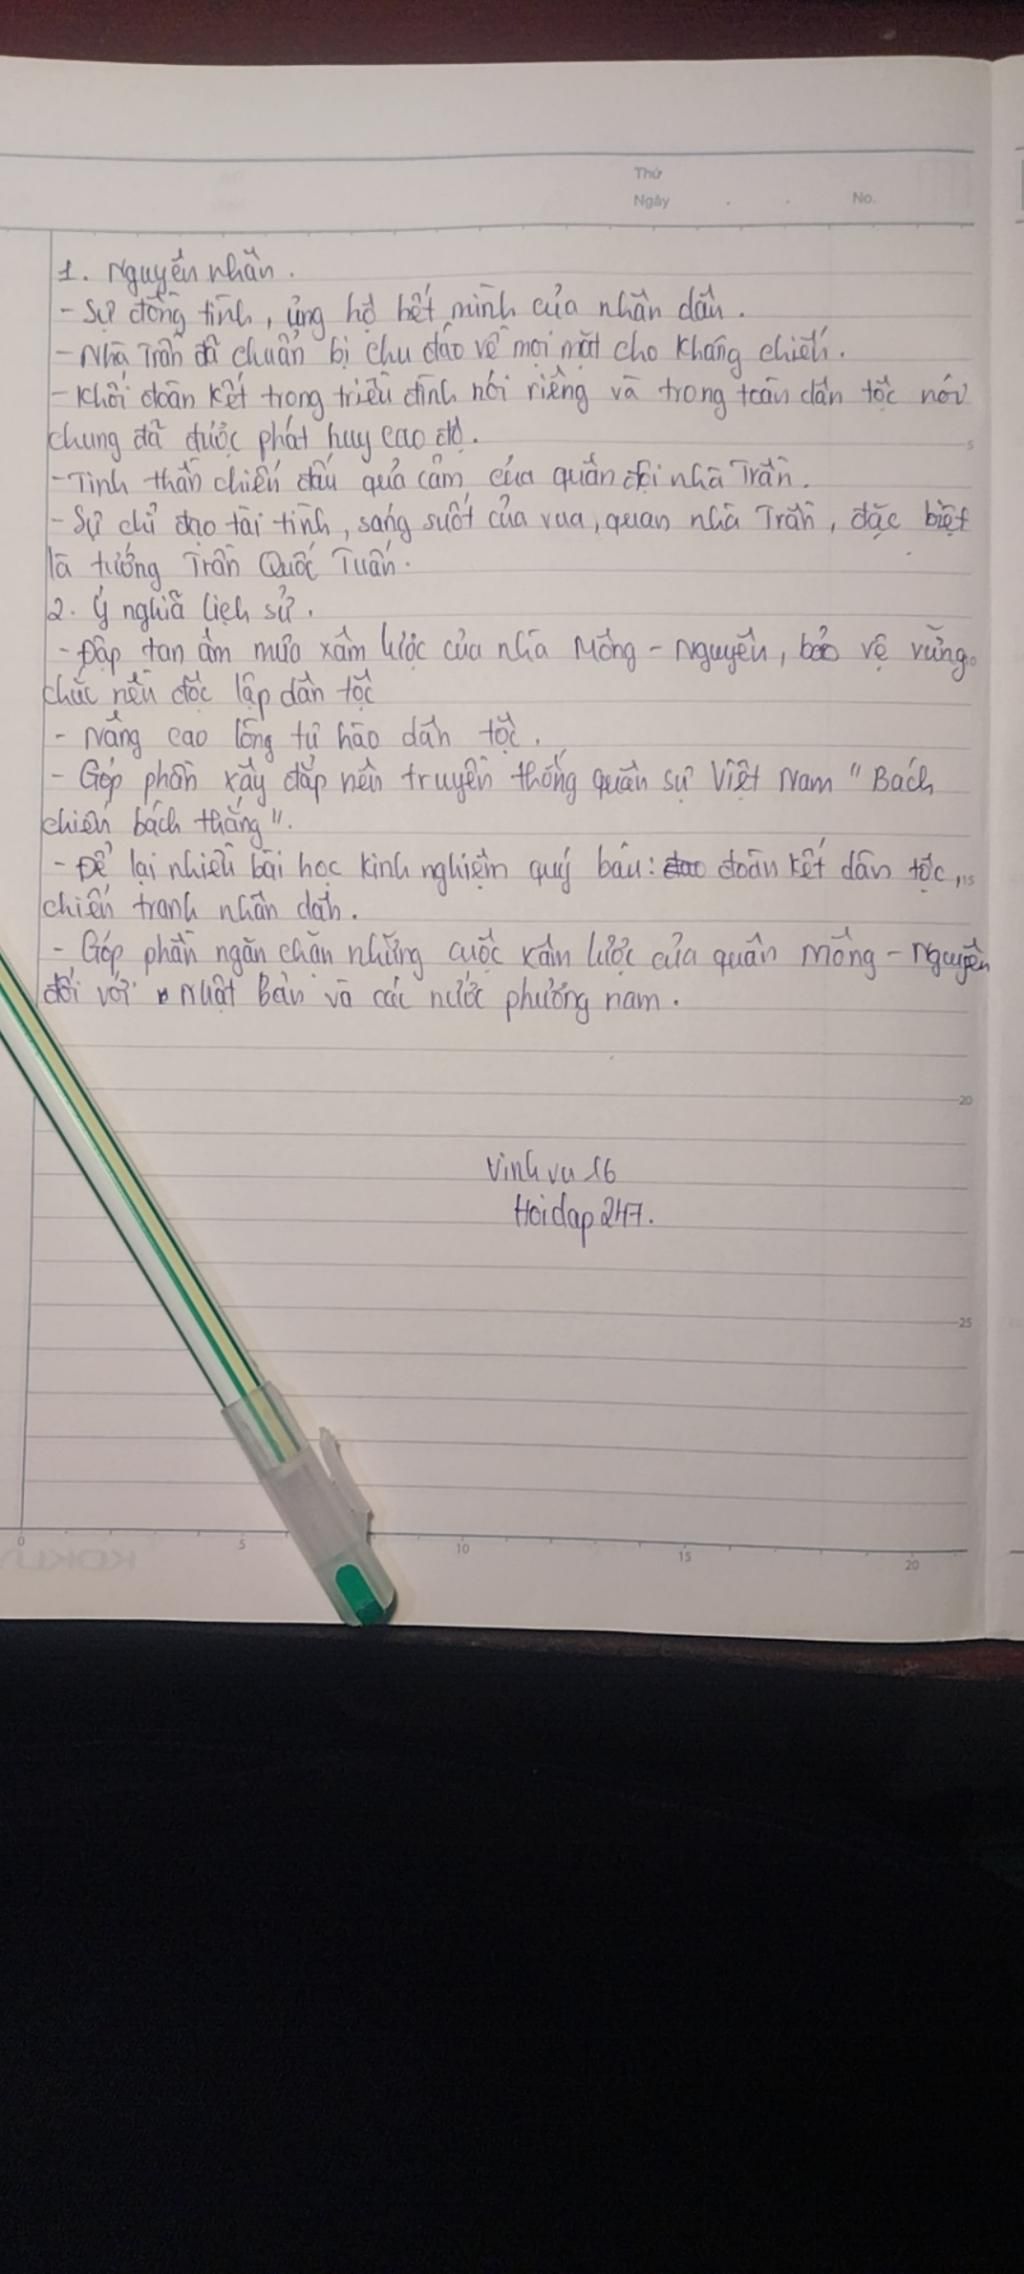 Thứ
Ngày . . No.
1. Nguyên nhân.
- Sự đồng tình, ủng hộ hết mình của nhân dân.
- Nhà Trần đã chuẩn bị chu đáo về mọi mặt cho kháng chiến.
- Khối đoàn kết trong triều đình nói riêng và trong toàn dân tộc nói
chung đã được phát huy cao độ.
5
- Tinh thần chiến đấu quả cảm của quân đội nhà Trần.
- Sự chỉ đạo tài tình, sáng suốt của vua, quan nhà Trần, đặc biệt
là tướng Trần Quốc Tuấn.
2. Ý nghĩa lịch sử.
- Đập tan âm mưu xâm lược của nhà Mông - Nguyên, bảo vệ vững
chắc nền độc lập dân tộc
- Nâng cao lòng tự hào dân tộc.
- Góp phần xây đắp nên truyền thống quân sự Việt Nam "Bách
chiến bách thắng".
- Để lại nhiều bài học kinh nghiệm quý báu: đoàn kết dân tộc,
15
chiến tranh nhân dân.
- Góp phần ngăn chặn những cuộc xâm lược của quân Mông - Nguyên
đối với Nhật Bản và các nước phương nam.
20
Vinhvu16
Hoidap247.
25
0 5 10 15 20